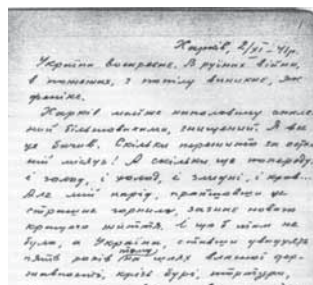 Харків, 2/XI-41р.
Україна воскресне. В руїнах війни,
в пожежах, з попілу виникне, як
фенікс.
Харків майже наполовину спале-
ний більшовиками, знищений. Я все
це бачив. Скільки пережито за остан-
ній місяць! А скільки ще попереду,
і голод, і холод, і злидні, і кров...
Але мій нарід, пройшовши це
страшне горнило, зазнає нового
кращого життя. І щоб там не
було, а Україна, ставши
п'ять років тому на шлях власної дер-
жавності, крізь бурі,